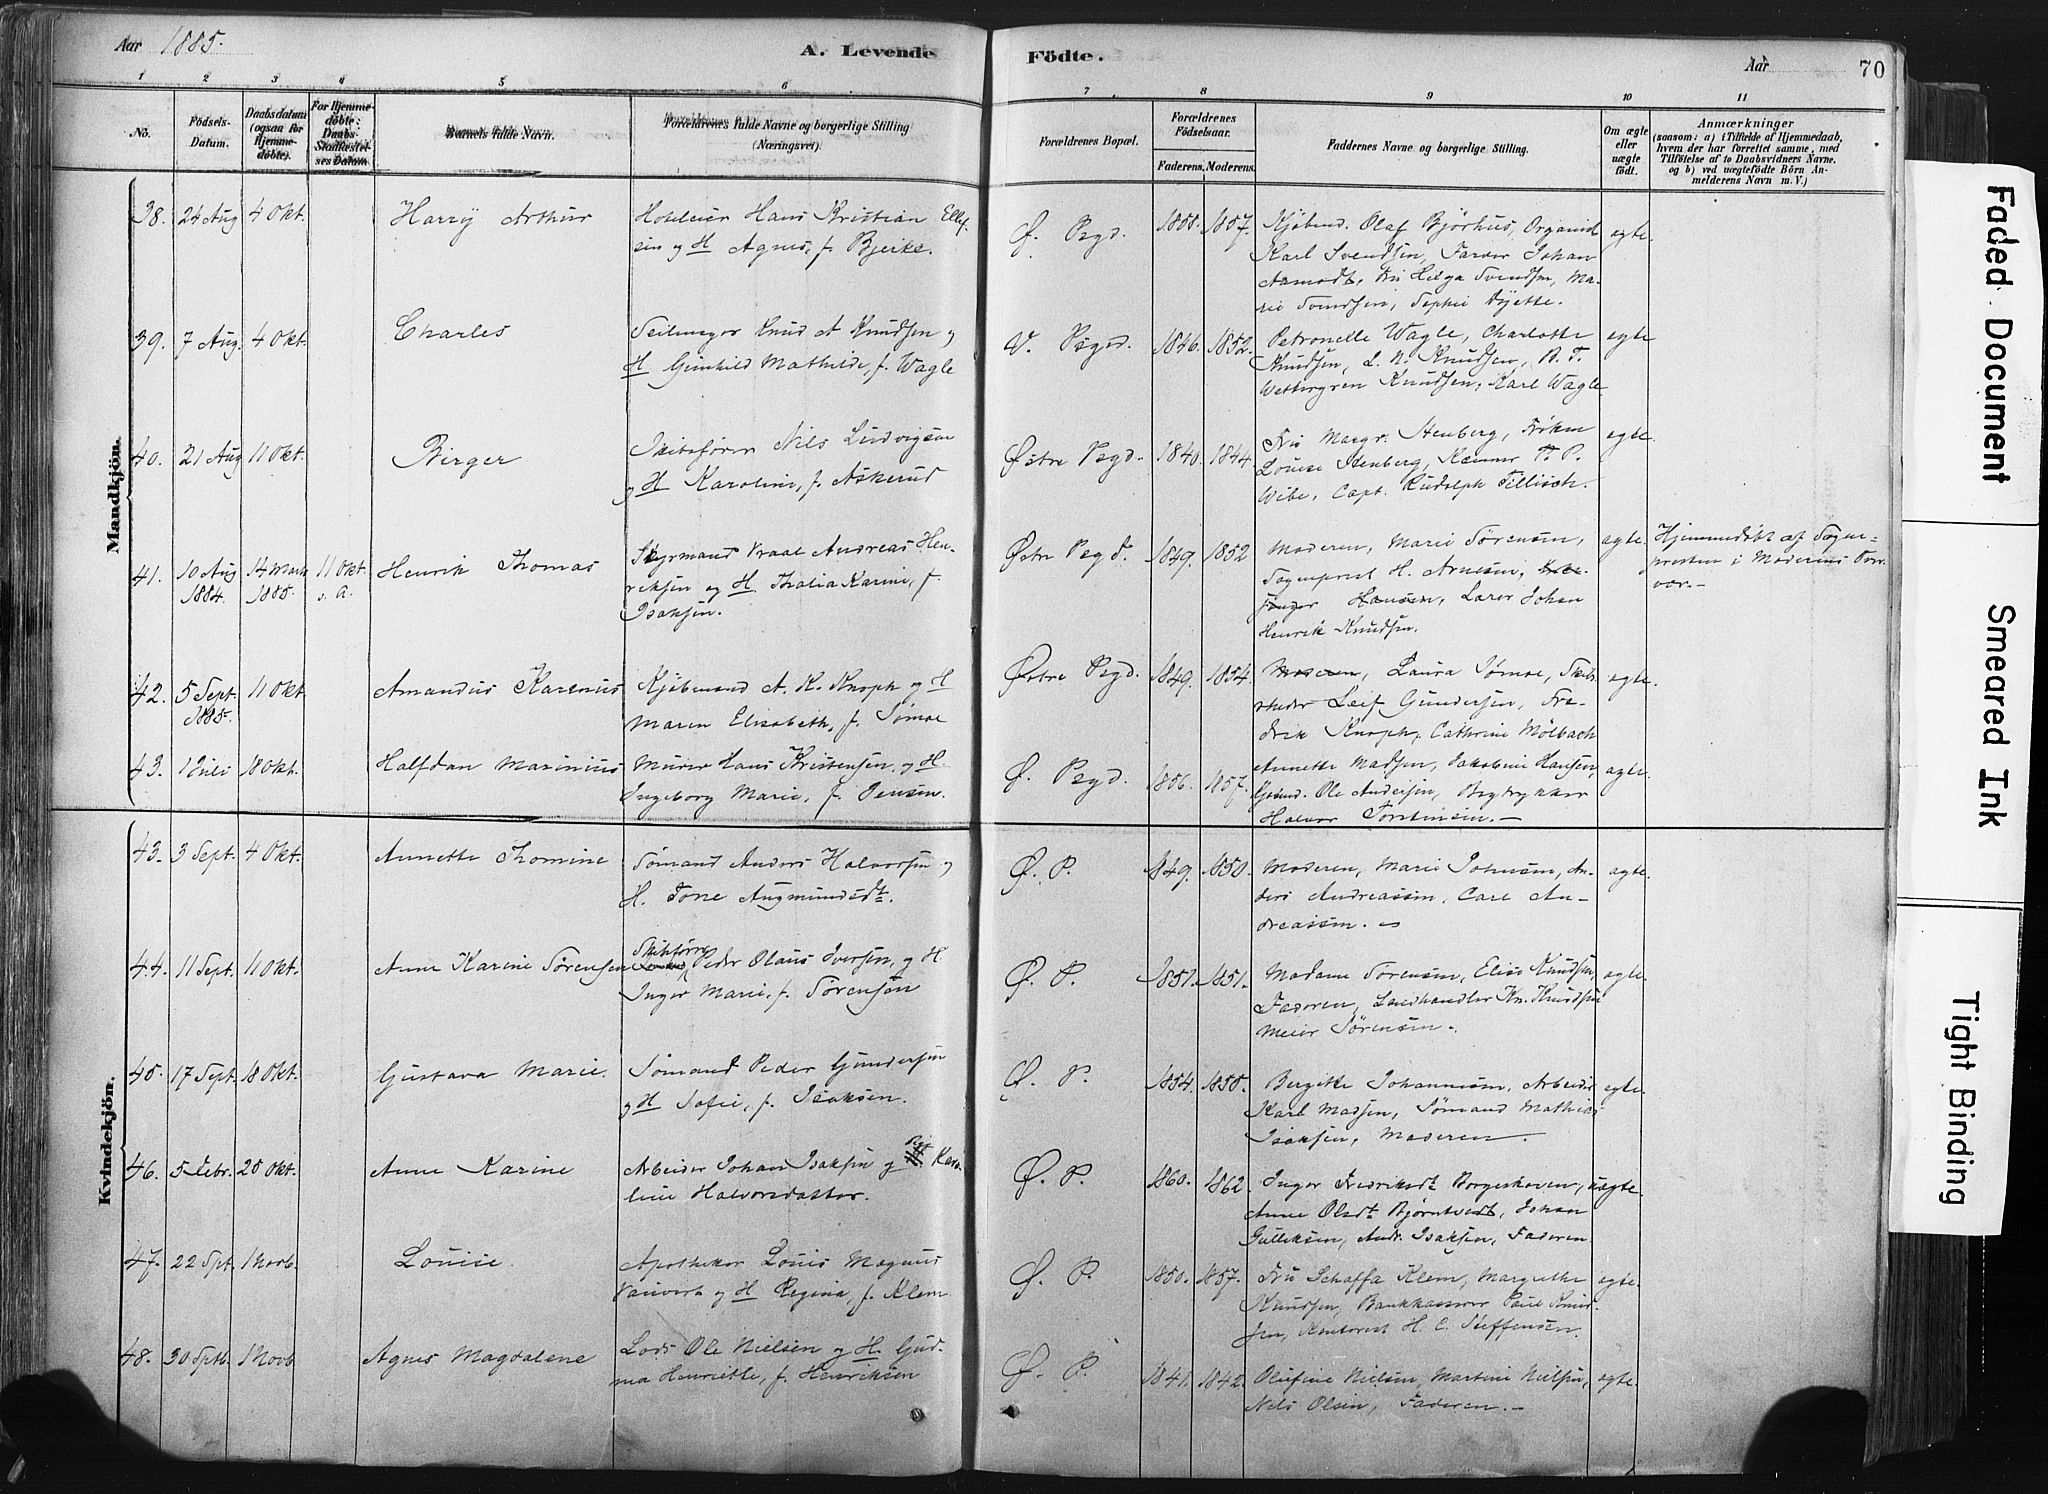 Aar 1885.
A. Levende
Födte.
Aar
70
1 2 3 4 5 6
7 8 9 10 11
No.
Födsels-Datum.
Daabsdatum (ogsaa for Hjemme-döbte).
For Hjemme-döbte: Daabs-Stadfæstel-ses Datum
Barnets fulde Navn.
Forældrenes fulde Navne og borgerlige Stilling (Næringsvei).
Forældrenes Bopæl.
Forældrenes Födselsaar.
Faderens. Moderens.
Faddernes Navne og borgerlige Stilling.
Om ægte eller uægte födt.
Anmærkninger
(saasom: a) i Tilfælde af Hjemmedaab, hvem der har forrettet samme, med Tilföielse af to Daabsvidners Navne, og b) ved uægtefödte Börn An-melderens Navn m. V.)
Mandkjön.
38. 24 Aug 4 Okt. Harry Arthur Hoteleier Hans Kristian Ellef-
sen og H Agnes, f. Bjerke.
Ø. Psgd. 1858. 1857. Kjøbmd. Olaf Bjørhus, Organist ægte.
Karl Svendsen, Farver Johan
Aamodt, Fru Helga Svendsen, Ma-
rie Svendsen, Sophie
39. 7 Aug. 4 Okt. Charles Seilmager Knud A Knudsen og
H Gunhild Mathilde, f. Wagle
V. Psgd. 1846. 1852. Petronelle Wagle, Charlotte ægte
Knudsen, L. N. Knudsen, B. T.
Wettergren Knudsen, Karl Wagle
40. 21 Aug 11 Okt. Birger Skibsfører Nils Ludvigsen
og H Karoline, f. Askerud
Østre Psgd. 1840. 1844 Fru Margr. Stenberg, Frøken ægte.
Louise Stenberg, Kæmner P. P.
Wibe, Capt. Rudolph Tillisch.
41. 10 Aug 1884. 14 Marts 1885. 11 Okt. s. A. Henrik Thomas Styrmand Vraal Andreas Hen-
riksen og H Thalia Karine, f.
Isaksen.
Østre Psgd. 1849. 1852 Moderen, Marie Sørensen, ægte.
Sogneprest H. Arnesen,
Hansen, Larer Johan
Henrik Knudsen.
Hjemmedøbt af Sogne-
presten i Moderens Overvær.-
42. 5 Sept. 1885. 11 Okt Amandus Karenus Kjøbmand A. K. Knoph og H
Maren Elisabeth, f. Sømoe
Østre Psgd. 1849. 1854. Moderen, Laura Sømoe, Skibs-
rheder Leif Gundersen, Fre-
drik Knoph, Cathrine Mølbach
ægte.
43. 1 Juli 18 Okt. Halfdan Marinius Murer Hans Kristensen, og H.
Ingeborg Marie, f. Jensen.
Ø. Psgd. 1856. 1857. Annette Madsen, Jakobine Hansen, ægte.
Ole Andersen, Bogtrykker
Halvor Torstensen.-
Kvindekjön.
43. 3 Sept. 4 Okt. Annette Thomine Sømand Anders Halvorsen og
H. Tone Augmundsdt.
Ø. P. 1849. 1850. Moderen, Marie Johnsen, An-
ders Andreassen, Carl An-
dreassen.-
ægte.
44. 11 Sept. 11 Okt. Anne Karine Sørensen Skibsfører Peder Olaus Iversen, og H
Inger Marie, f. Sørensen
Ø. P. 1851. 1851. Madame Sørensen, Elise Knudsen, ægte.
Faderen, Landhandler Kn. Knudsen
Meier Sørensen.
45. 17 Sept. 18 Okt. Gustava Marie. Sømand Peder Gundersen
og H Sofie, f. Isaksen.
Ø. P. 1854. 1850. Bergitte Johannesen, Arbeider ægte.
Karl Madsen, Sømand Mathias
Isaksen, Moderen.
46. 5 Febr. 25 Okt. Anne Karine Arbeider Johan Isaksen og Pige Karo-
line Halvorsdatter.
Ø. P. 1860. 1862. Inger Fredriksdt Borgeskoven, uægte.
Anne Olsdt Bjørntvedt, Johan
Gulliksen, Andr. Isaksen, Faderen
47. 22 Spt. 1 Novb. Louise. Apotheker Louis Magnus
Vauvert og H Regina, f. Klem
Ø. P. 1850. 1857. Fru Schaffa Klem, Margrethe ægte.
Knudsen, Bankkasserer Paul Knud-
sen, Kontorist H. C. Steffensen.
48. 30 Sptb. 1 Novb Agnes Magdalene Lods Ole Nielsen og H. Gud-
ma Henriette, f. Henriksen
Ø. P. 1841. 1842. Olufine Nielsen, Martine Nielsen, ægte.
Nels Olsen, Faderen.-
Faded Document
Smeared Ink
Tight Binding